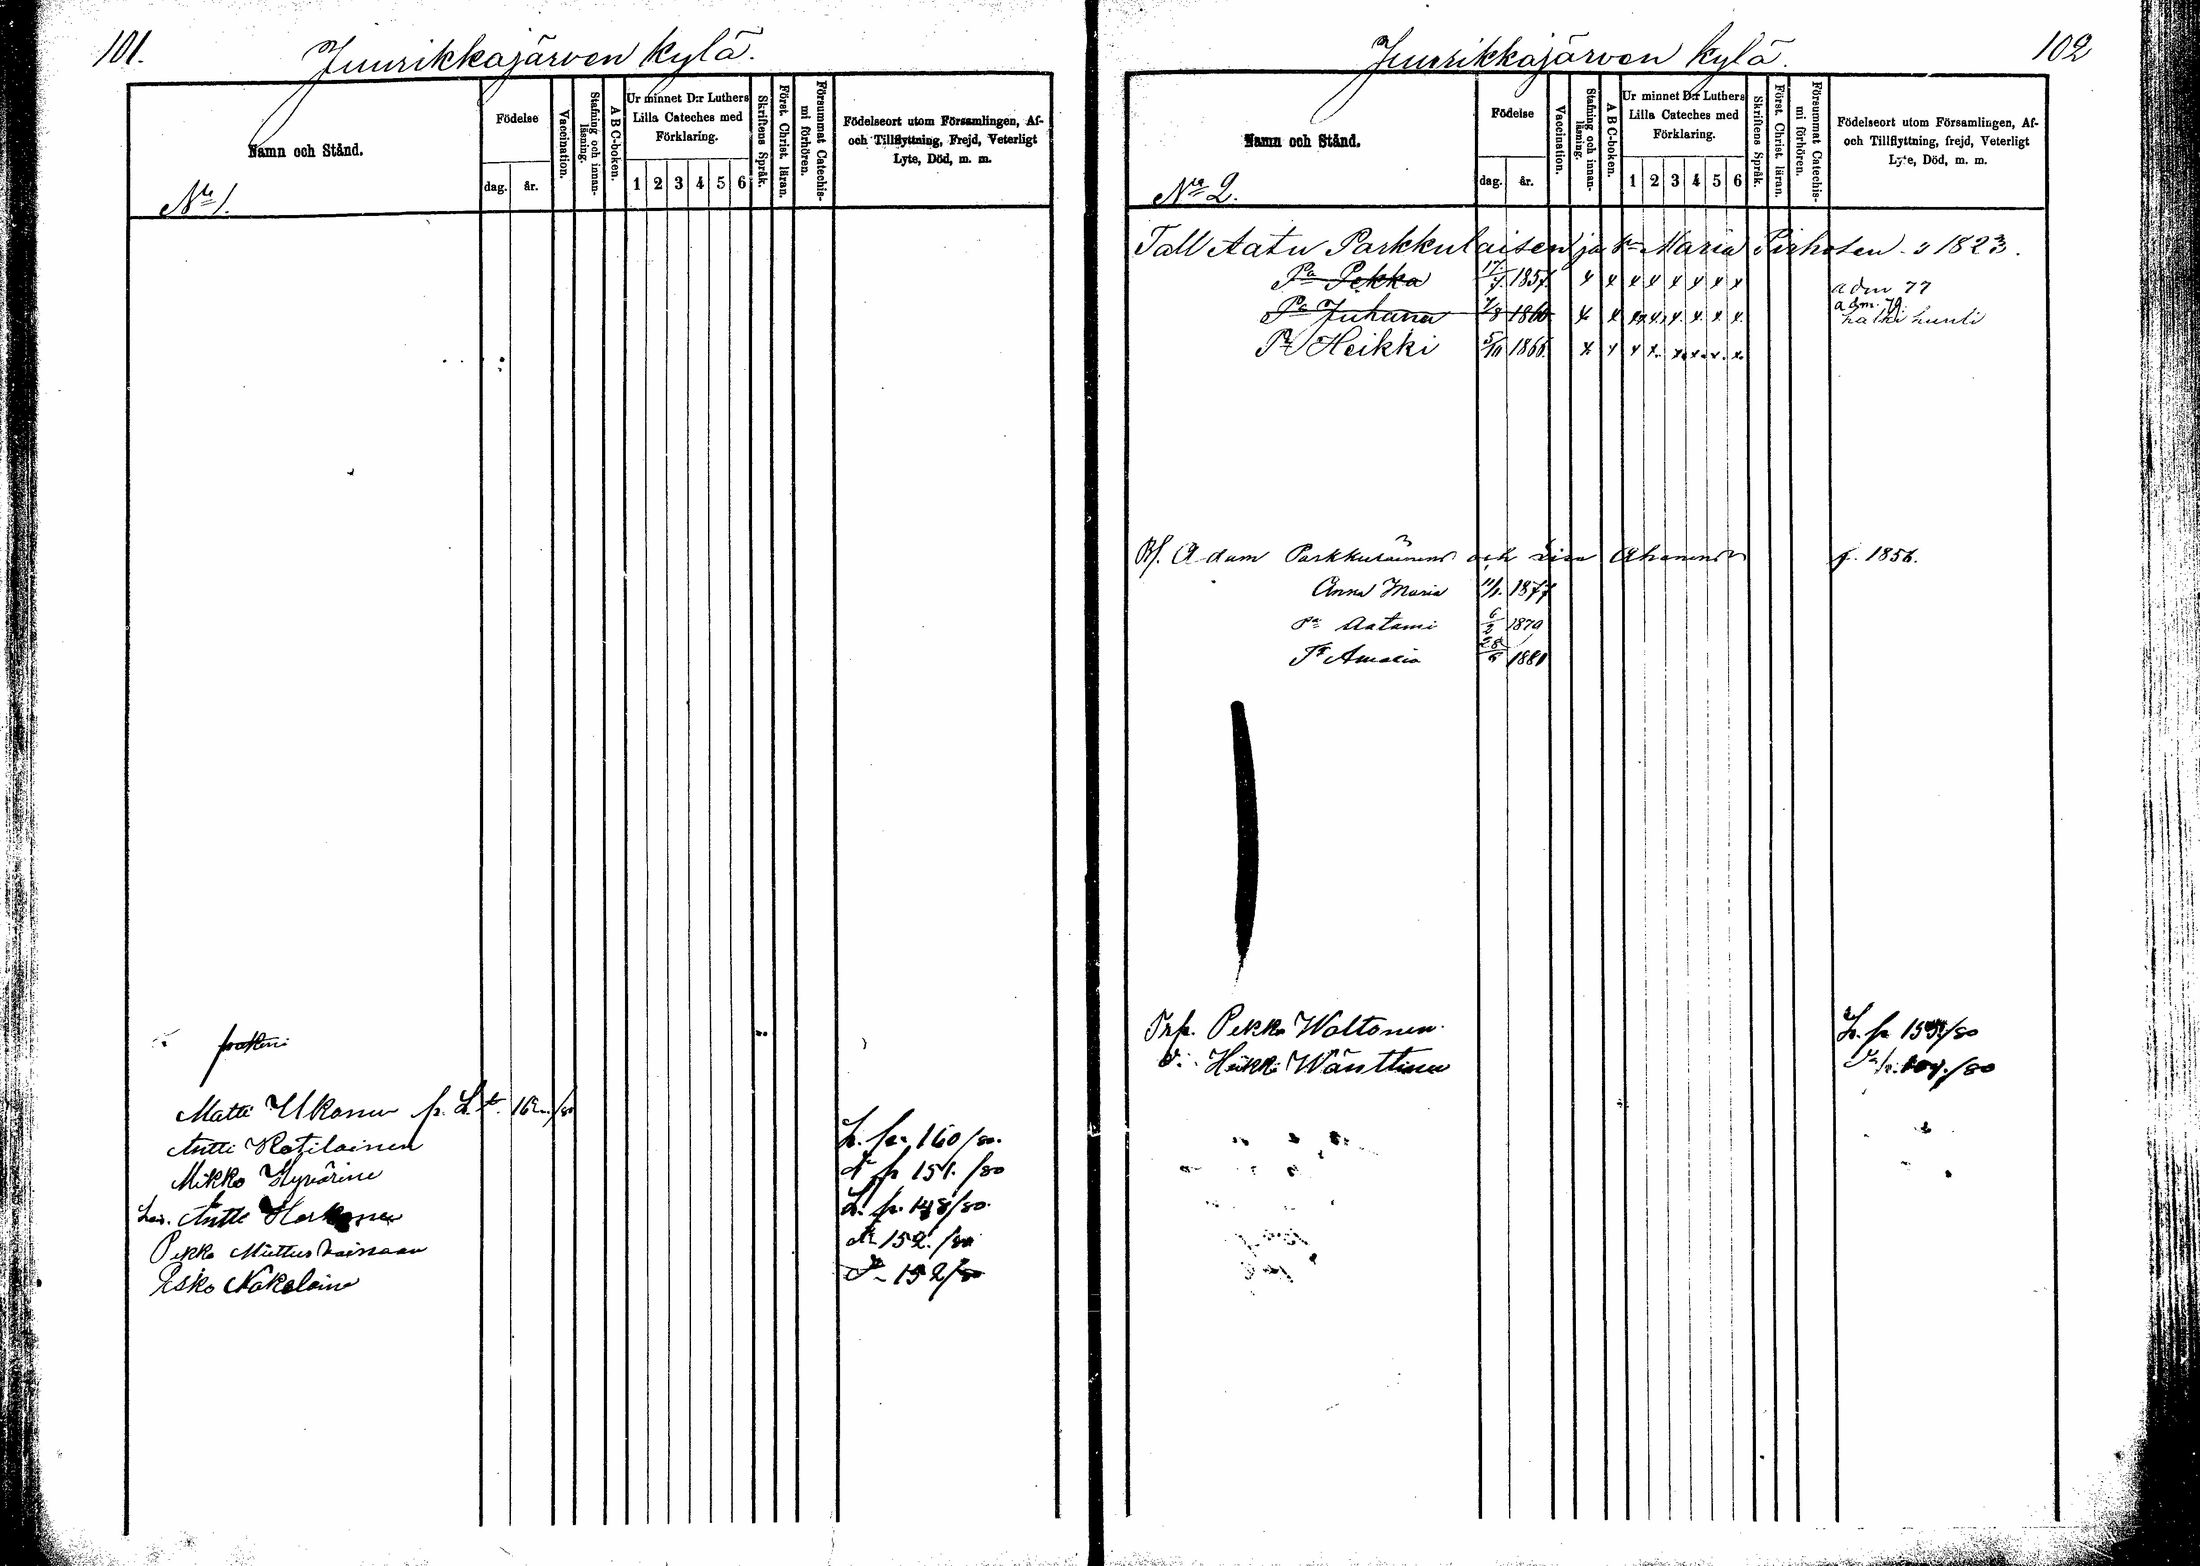 101.
Juurikkajärven kylä.
Namn och Stånd.
Födelse
dag.
år.
Vaccination.
Stafning och innanläsning.
A B C-boken.
Ur minnet D:r Luthers
Lilla Cateches med
Förklaring.
1 2 3 4 5 6
Skriftens Språk.
Först. Christ. läran.
Försummat Catechismi förhören.
Födelseort utom Församlingen, Af-
och Tillflyttning, Frejd, Veterligt
Lyte, Död, m. m.
No 1.
Matti Ukonen
Antti Ratilainen p. 160/80.
Mikko Hyvärine p 151./80
Antti /80.
Pekka 152./80
Esko Nokelaine 152/80
Juurikkajärven kylä.
102
Namn och Stånd.
Födelse
dag.
år.
Vaccination.
Stafning och innanläsning.
A B C-boken.
Ur minnet D:r Luthers
Lilla Cateches med
Förklaring.
1 2 3 4 5 6
Skriftens Språk.
Först. Christ. läran.
Försummat Catechismi förhören.
Födelseort utom Församlingen, Af-
och Tillflyttning, frejd, Veterligt
Lyte, Död, m. m.
No 2.
Tall Aatu Parkkulaisen ja Maria Pirhosen s 1823.
Pa Pekka 17/7 1857. x x x x x x x x adm 77
Pa Juhana 7/8 1860 x x x x x x x x adm. 79
Pa Heikki 5/10 1866. x x x x x x x x
Adam Parkkulainen och Lisa Ahonen f. 1856.
Anna Maria 11/1. 1877
Pa Aatami 6/2 1879
Tr Amalia 28/6 1881
Pekka Waltonen. /80
Heikki Wänttinen /80